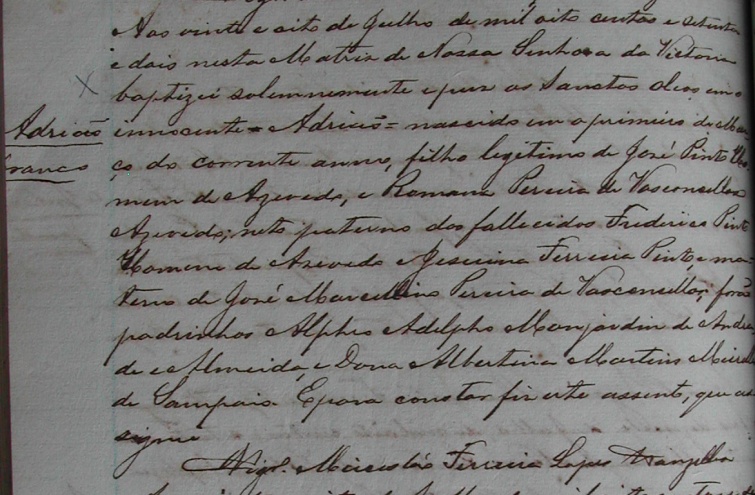 Aos vinte e oito de Julho de mil oito centos e setenta
e dois nesta Matriz de Nossa Senhora da Victoria
baptizei solemnemente e puz os Sanctos Oleos em o
Adrião innocente = Adrião = nascido em o primeiro de Mar
branco ço do corrente anno, filho legitimo de José Pinto Ho
mem de Azevedo, e Romana Pereira de Vasconcellos
Azevedo; neto paterno dos fallecidos Frederico Pinto
Homem de Azevedo e Jesuina Ferreira Pinto, e ma-
terno de José Marcellino Pereira de Vasconcellos; forão
padrinhos Alpheo Adelpho Monjardim de Andra
de e Almeida, e Dona Albertina Martins Meirelles
de Sampaio. E para constar fiz este assento, que as
signei
Vigr.º Miecesláo Ferreira Lopes Wanzeller